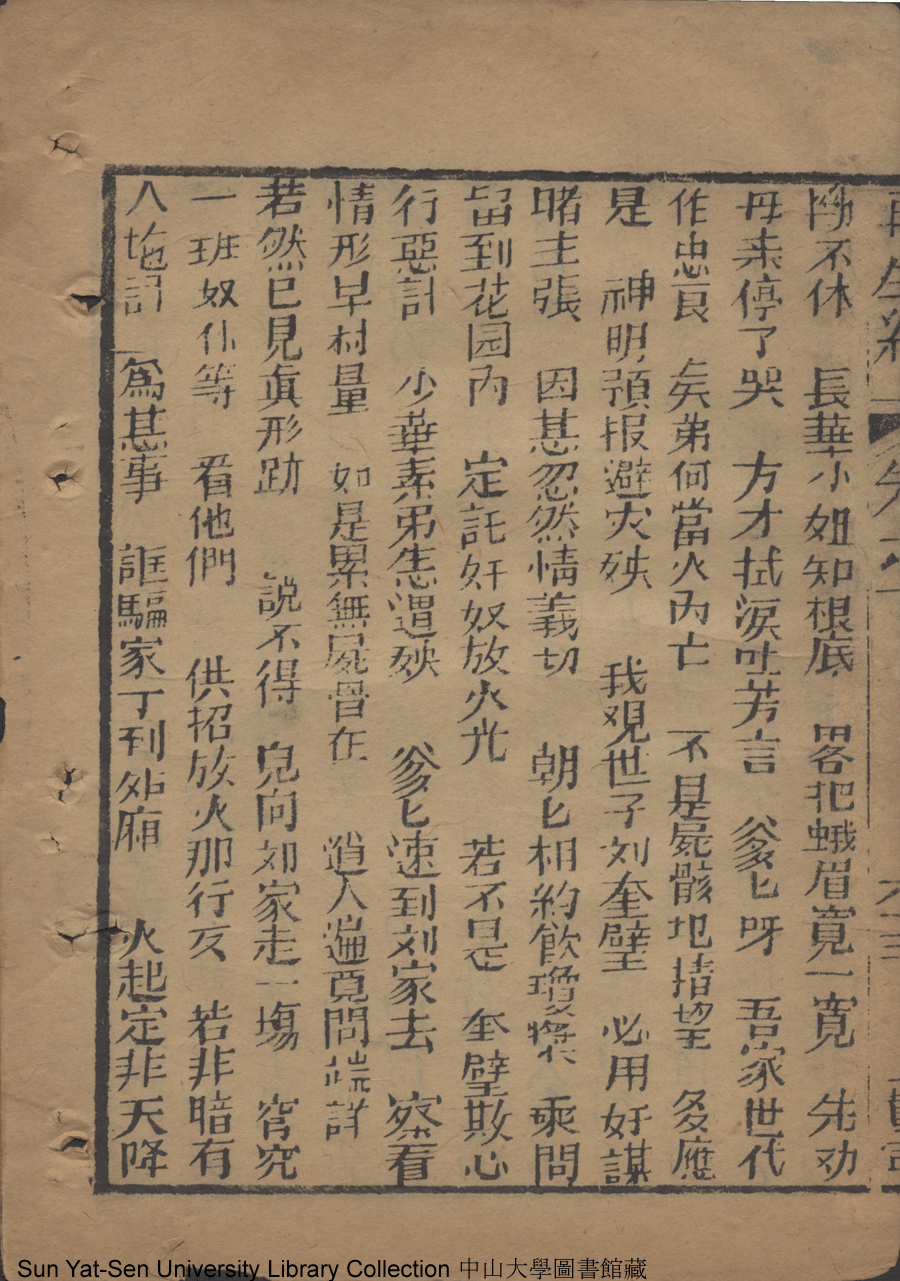 再生緣 卷六
不休 長華小姐知根底 畧把蛾眉寬一寬 先劝
母亲停了哭 方才拭淚吐芳言 爹匕呀 吾家世代
作忠良 矣弟何當火內亡 不是屍骸圯捨望 多應
是 神明預报避灾殃 我观世子刘奎璧 必用奸謀
賭主張 因甚忽然情義切 朝匕相約飲瓊漿 乘間
留到花园內 定託奸奴放火光 若不是 奎璧欺心
行惡計 少華素弟怎遭殃 爹匕速到刘家去 察看
情形早村量 如是累無屍骨在 道人遍覓問端詳
若然已見真形跡 說不得 皃向刘家走一塲 窮究
一班奴仆等 看他們 供招放火那行又 若非暗有
人施計 為甚事 誆騙家丁到外廂 火起定非天降
Sun Yat-Sen University Library Collection 中山大學圖書館藏